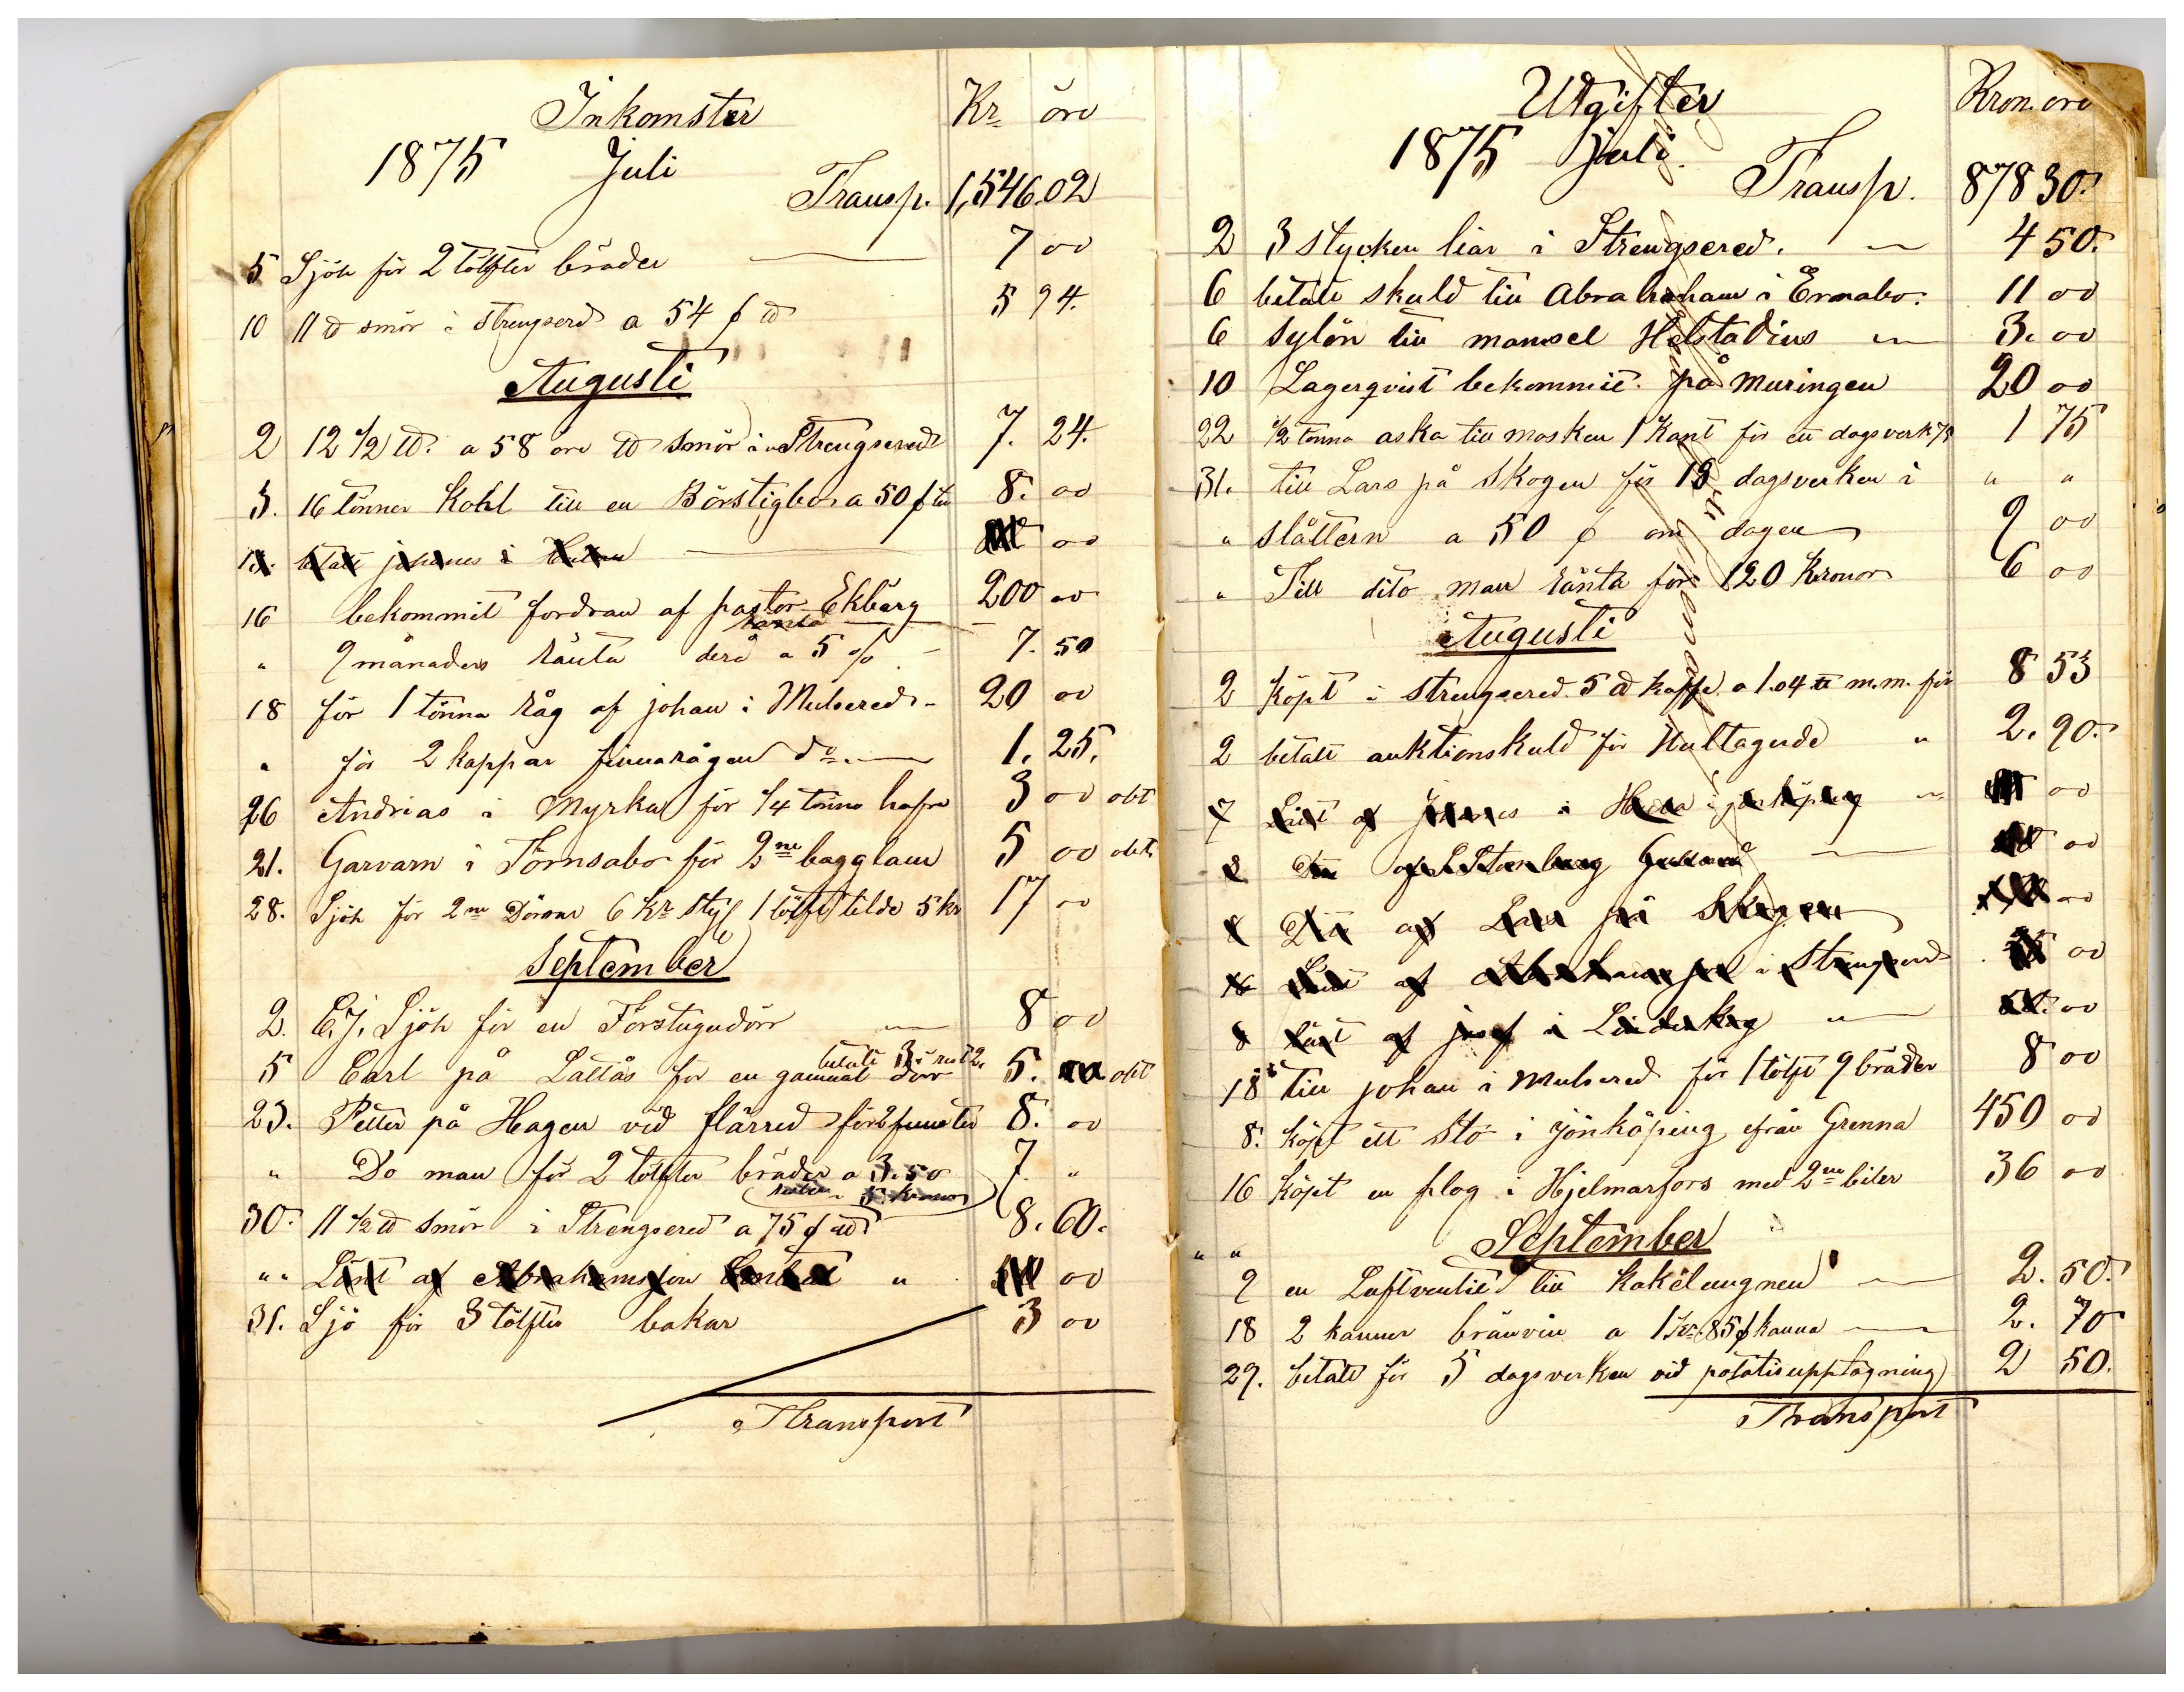 Inkomster Kr öre
1875 Juli
Transp. 1,546.02
5 Sjöh för 2 tölfter bräder 7 00
10 11 ℔ smör i strengserd a 54 ₰ ℔ 5 94.
Augusti
2 12 1/2 ℔. a 58 öre ℔ smör i Strengsered 7. 24.
3. 16 tönner Kohl till en Börstigbo a 50 ₰ tn 8. 00
00
16 bekommit fordran af pastor Ekberg 200 00
" 9 månaders ränta derå a 5 % 7. 50
18 för 1 tönna Råg af johan i Mulsered 20 00
" för 2 kappar finnarågen do 1. 25.
26 Andrias i Myrka för 1/4 tönna hafre 3 00 obt
21. Garvarn i Törnsabo för 2ne bagglam 5 00 obt.
28. Sjöh för 2ne Dörrar 6 Kr sty 1 tölft tilde 5 kr 17 00
September
2. C. J. Sjöh för en Förstugudörr 8 00
betalt 3 rest 2.
5 Carl på Lattås för en gammal dörr 5. obt
23. Petter på Hagen vid flärred för 2 funster 8. 00
" Do man för 2 tölfter bräder a 3.50 7. "
5 kronor
30. 11 1/2 ℔ smör i Strengsered a 75 ₰ ℔ 8. 60.
" " Lånt af Abrahamsson " 00
31. Sjö för 3 tölfter bakar 3 00
Transport
Utgifter Kron. öre
1875 Juli.
Transp. 878 30.
2 3 stycken liar i Strengsered. 4 50.
6 betalt skuld till Abraham i Ermabo. 11 00
6 sylön till mamsel Helstadius 3. 00
10 Lagerqvist bekommit på muringen 20 00
22 1/2 tönna aska till mosken 1 Kant för ett dagsverk 1 75
31. till Lars på Skogen för 18 dagsverken i " "
" slåttern a 50 ₰ om dagen 9 00
" Till dito man ränta för 120 Kronor 6 00
Augusti
2 Köpt i strengsered 5 ℔ kaffe a 1.04 ℔ m.m. för 8 53
2 betalt auktionskuld för Hultagerde " 2. 90.
00
00
af Lars på Skogen 00
i Strengserd 00
8 lånt af josef i 00
18 till johan i mulsered för 1 tölft 9 bräder 8 00
8. köpt ett sto i jönköping från Grenna 450 00
16 köpt en plog i Hjelmarfors med 2ne biler 36 00
" " September
9 en Luftventil till Kakelungnen 2. 50.
18 2 kannor bränvin a 1 Kr. 85 ₰ kanna 2. 70
29. betalt för 5 dagsverken vid potatisupptagning 2 50.
Transport